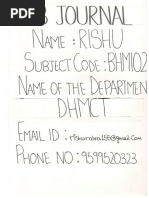 B JOURNAL
NAME : RISHU
SUBJECT CODE : BHM102
NAME OF THE DEPARTMEN
DHMCT
EMAIL ID :
PHONE NO : 9599520323